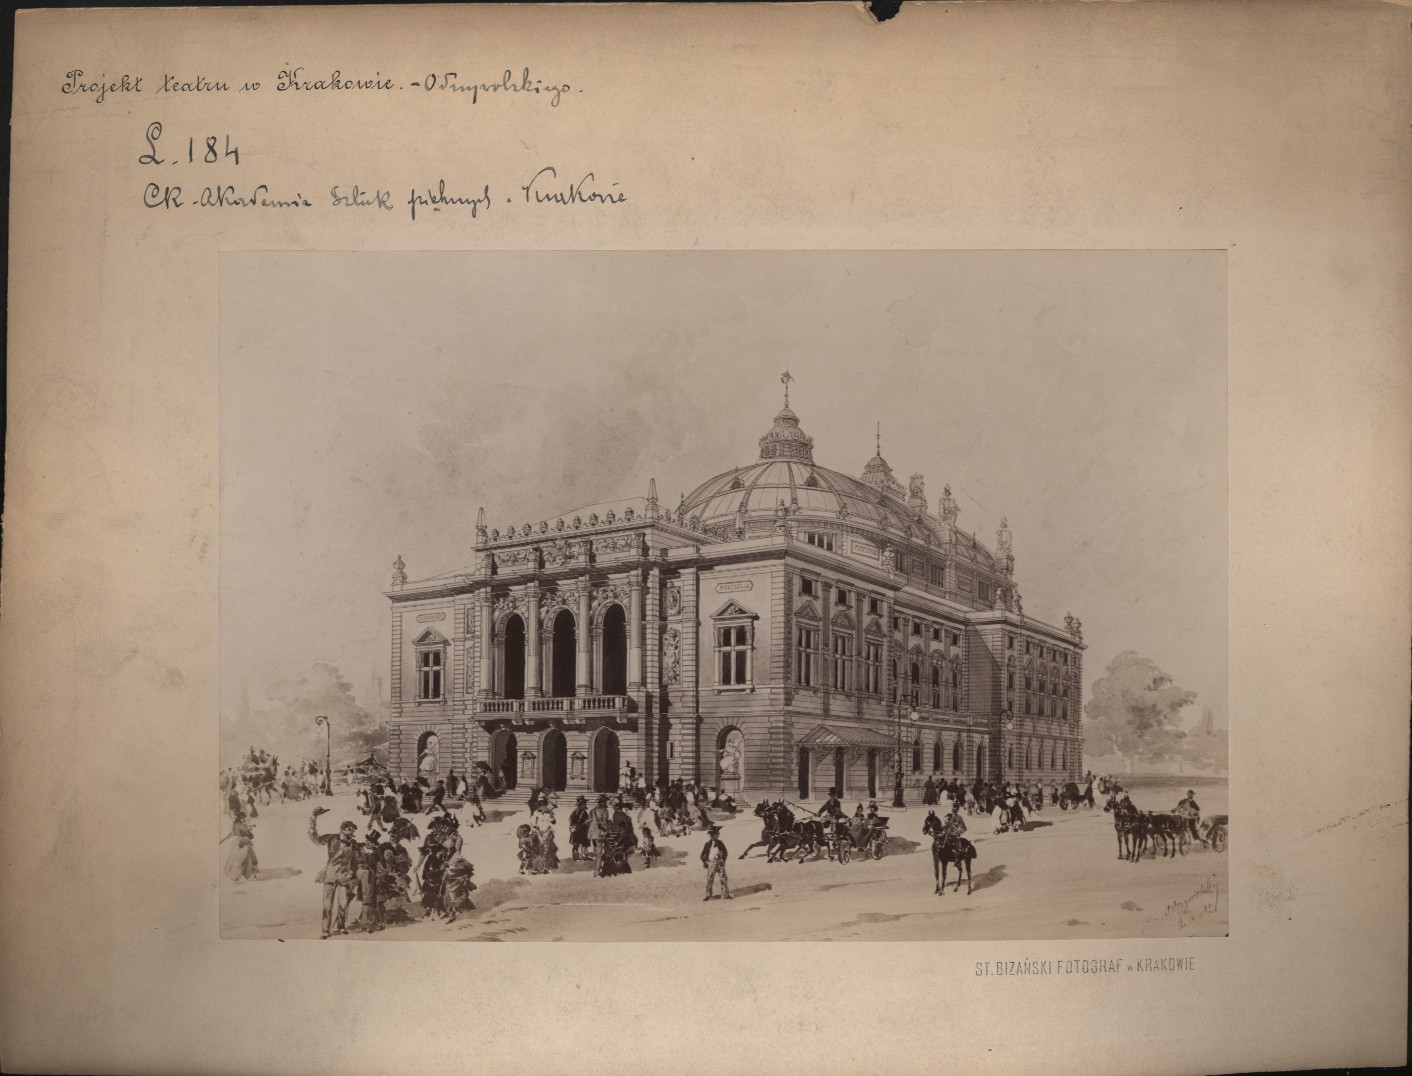 Projekt teatru w Krakowie. - Odrzywolskiego.
L. 184
CK - Akademia Sztuk pięknych . Krakowie
ST. BIZAŃSKI FOTOGRAF w KRAKOWIE